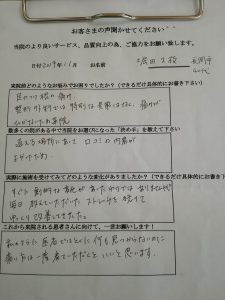 お客さまの声聞かせてください
当院のより良いサービス、品質向上の為、ご協力をお願い致します。
日付2019年11月 お名前
実際前どのようなお悩みでお困りでしたか？（できるだけ具体的にお書き下さい）
足のつけ根の痛み
整形外科では特別な異常はなく、痛みが
数多くの院がある中で当院をお選びになった「決め手」を教えて下さい
通える場所にあって 口コミの内容が
よかったため
実際に施術を受けてみてどのような変化がありましたか？（できるだけ具体的にお書き下さい）
すぐに劇的な変化があったわけではありませんが
毎日 教えていただいた ストレッチを続けて
ゆっくり改善してきました。
これから来院される患者さんに向けて、一言お願いします！
私のように 病院に行っても特に何も見つからないのに
痛い方は一度来ていただくと いいと思います。